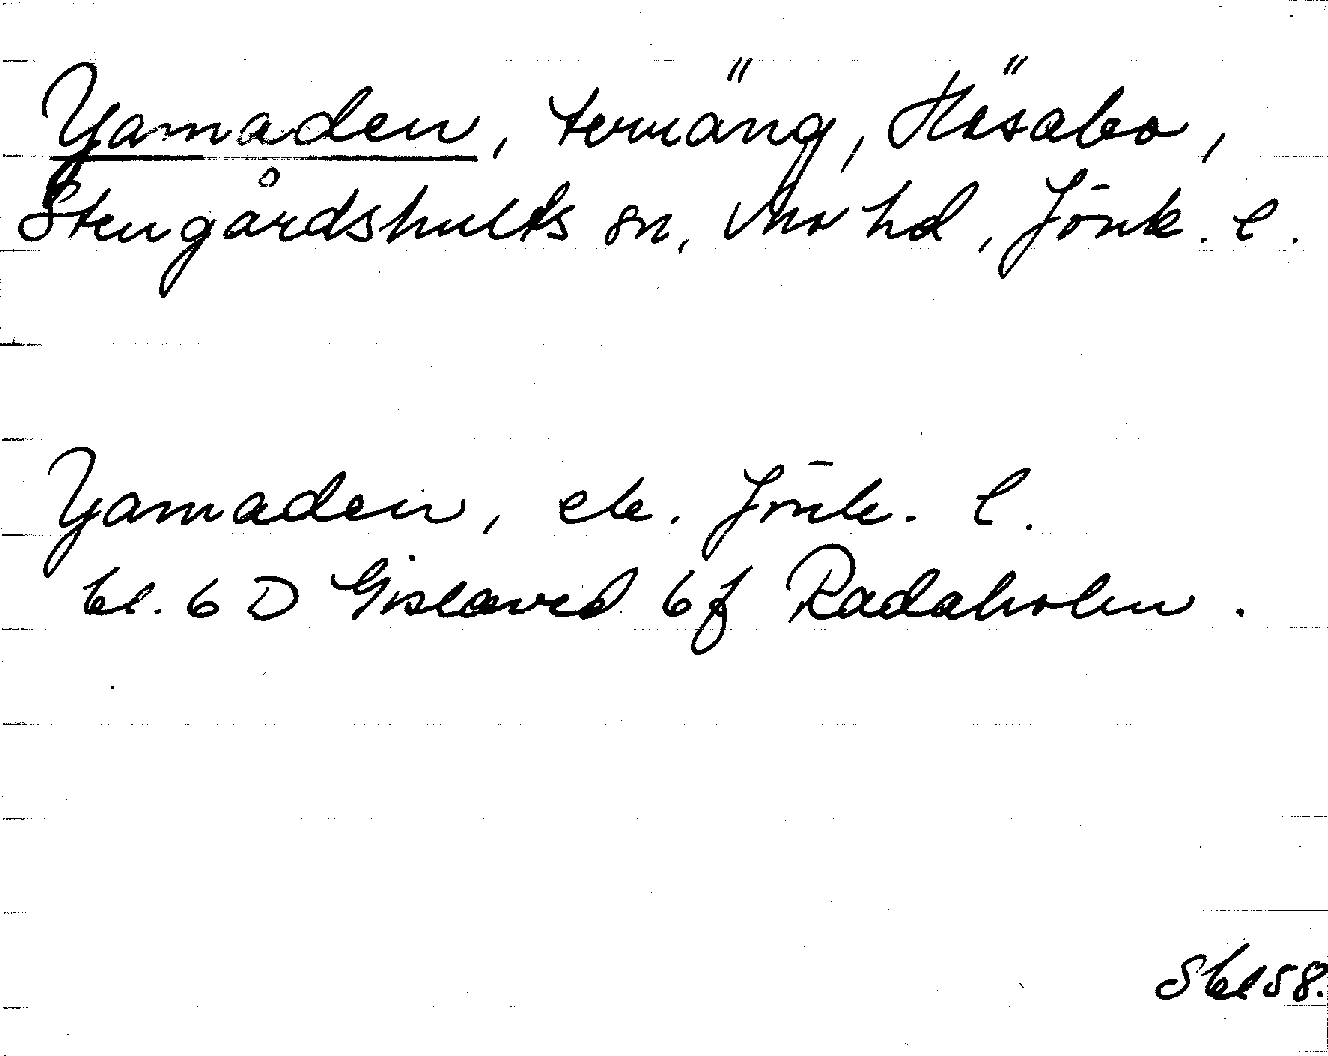 Yamaden, terräng, Hösabo,
Stengårdshults sn, Mo hd, Jönk. l.
Yamaden, ek. Jönk. l.
bl. 6 D Gislaved 6f Radaholm.
Sbl 58.